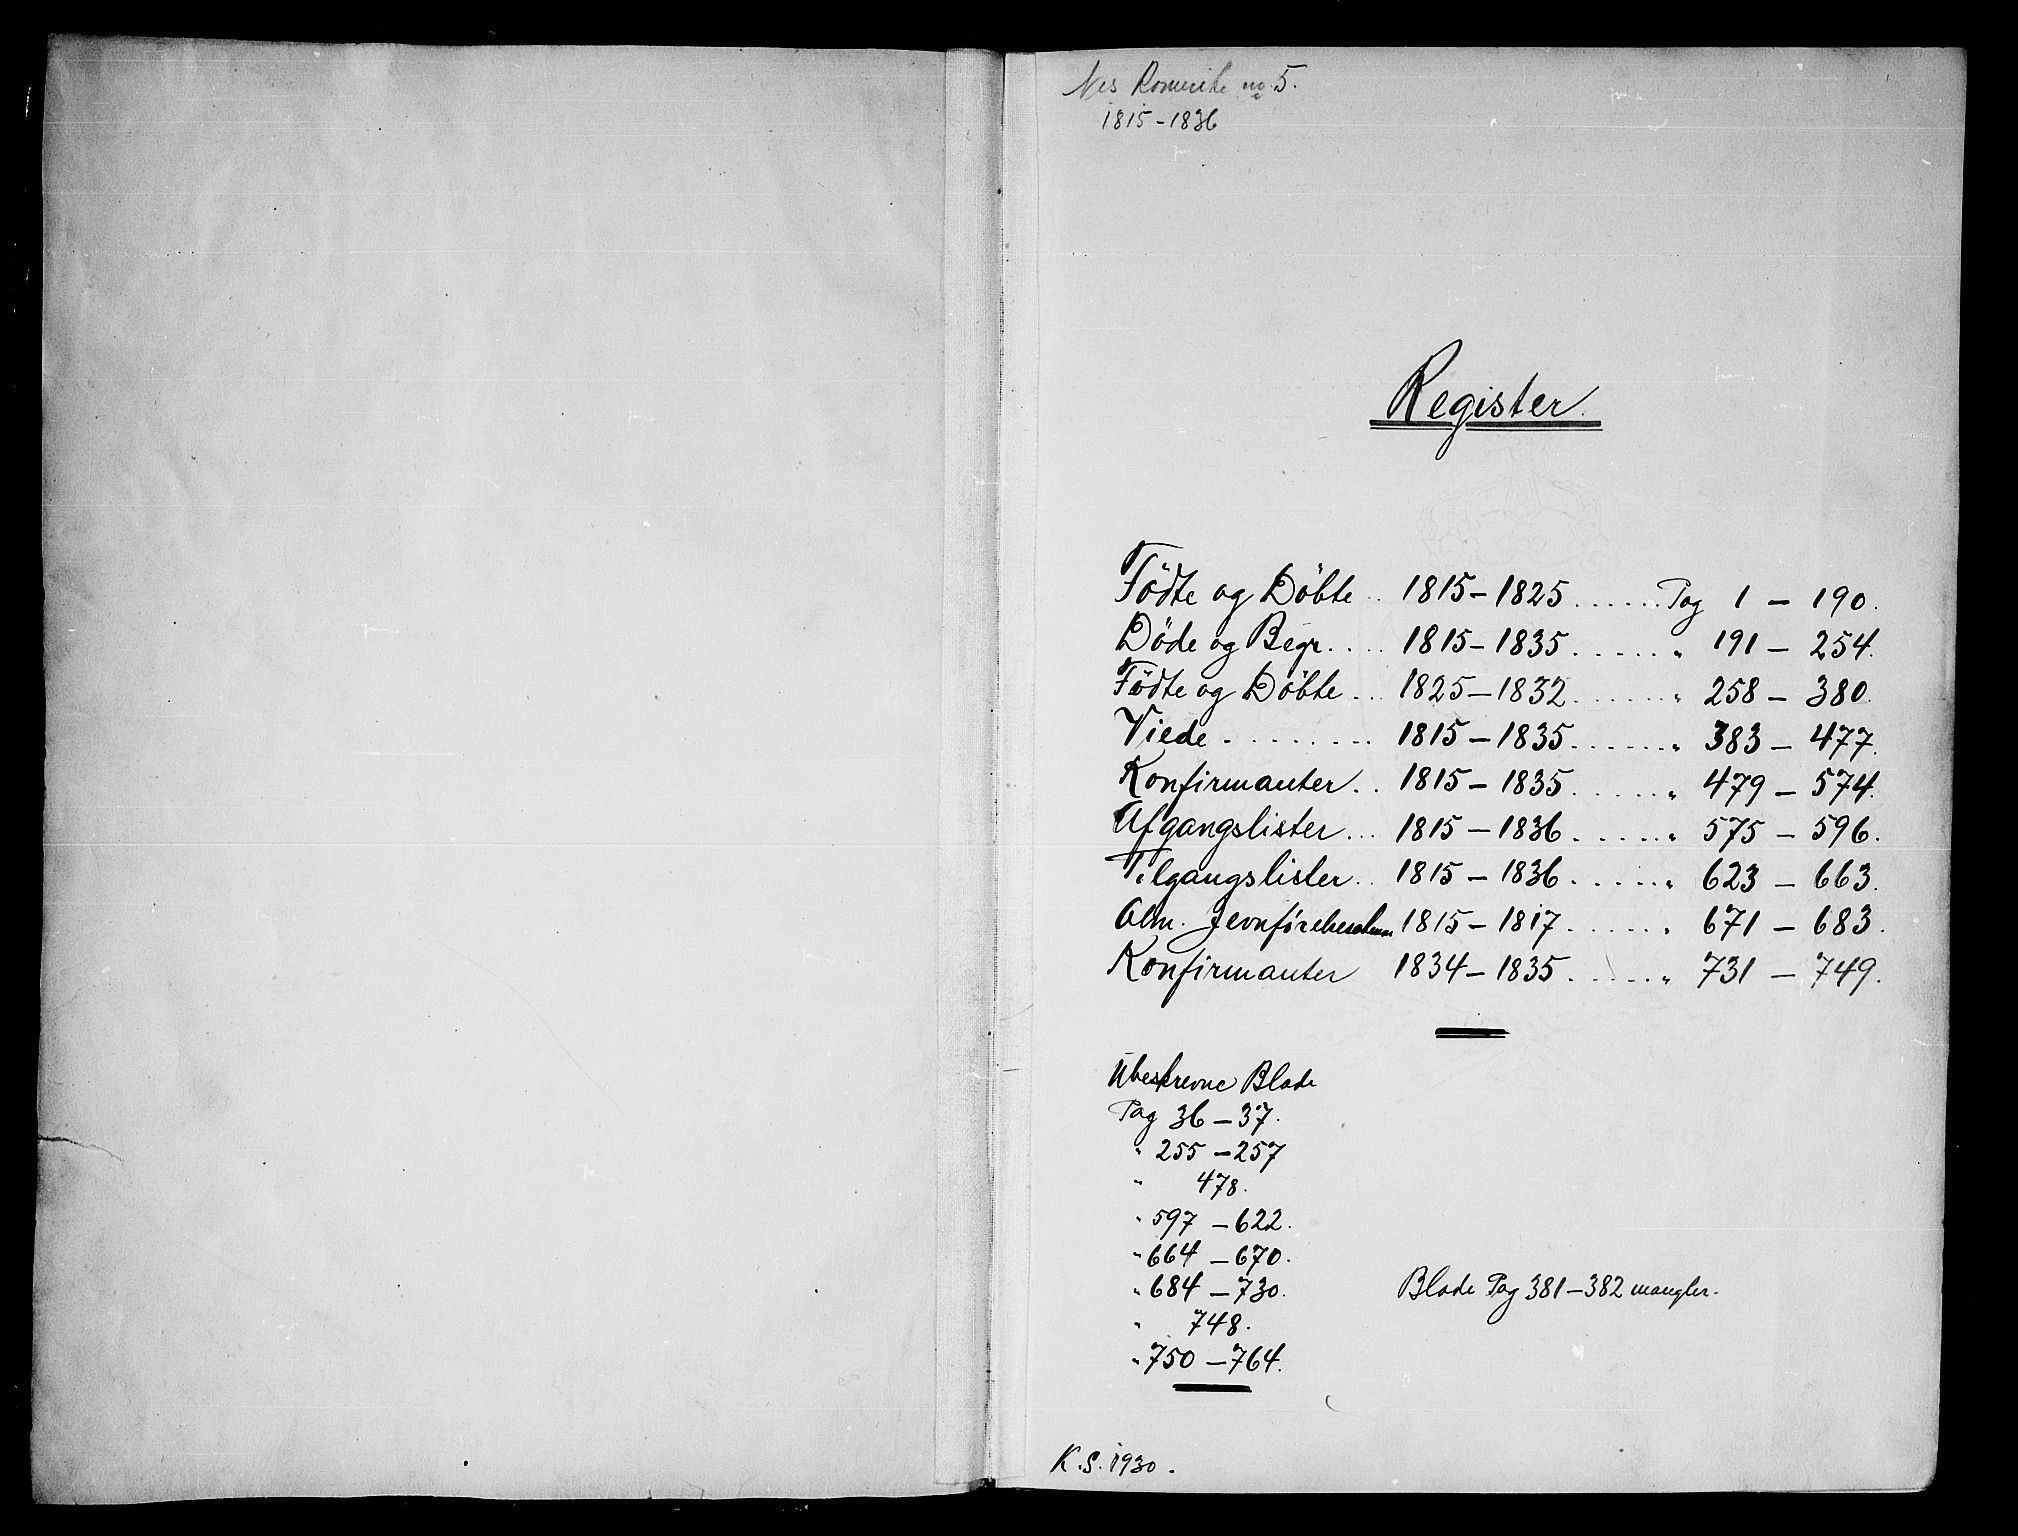 Nes Romerike no 5.
1815-1836
Register.
Födte og Döbte .. 1815-1825 ...... Pag 1 - 190.
Döde og Begr. ... 1815-1835 ...... " 191 - 254.
Födte og Döbte ... 1825-1832 ...... " 258 - 380.
Viede ......... 1815-1835 ...... " 383 - 477.
Konfirmanter ... 1815-1835 ...... " 479 - 574.
Afgangslister ... 1815-1836 ...... " 575 - 596.
Tilgangslister .. 1815-1836 ...... " 623 - 663.
Alm. 1815-1817 ...... " 671 - 683.
Konfirmanter 1834-1835 ...... " 731 - 749.
Ubeskrevne Blade
Pag 36-37.
" 255-257
" 478.
" 597-622.
" 664-670.
" 684-730. Blade Pag 381-382 mangler.
" 748.
" 750-764.
K.S. 1930.